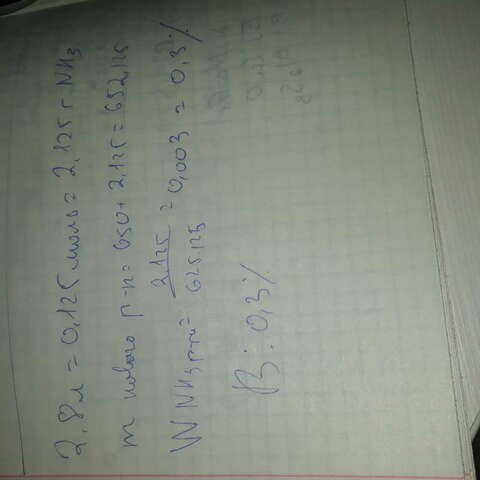 2,8л = 0,125 моль = 2,125 г NH3
m нового р-н = 650 + 2,125 = 652,125
W NH3 р-ри = 2,125 / 625,125 = 0,003 = 0,3%
В: 0,3%